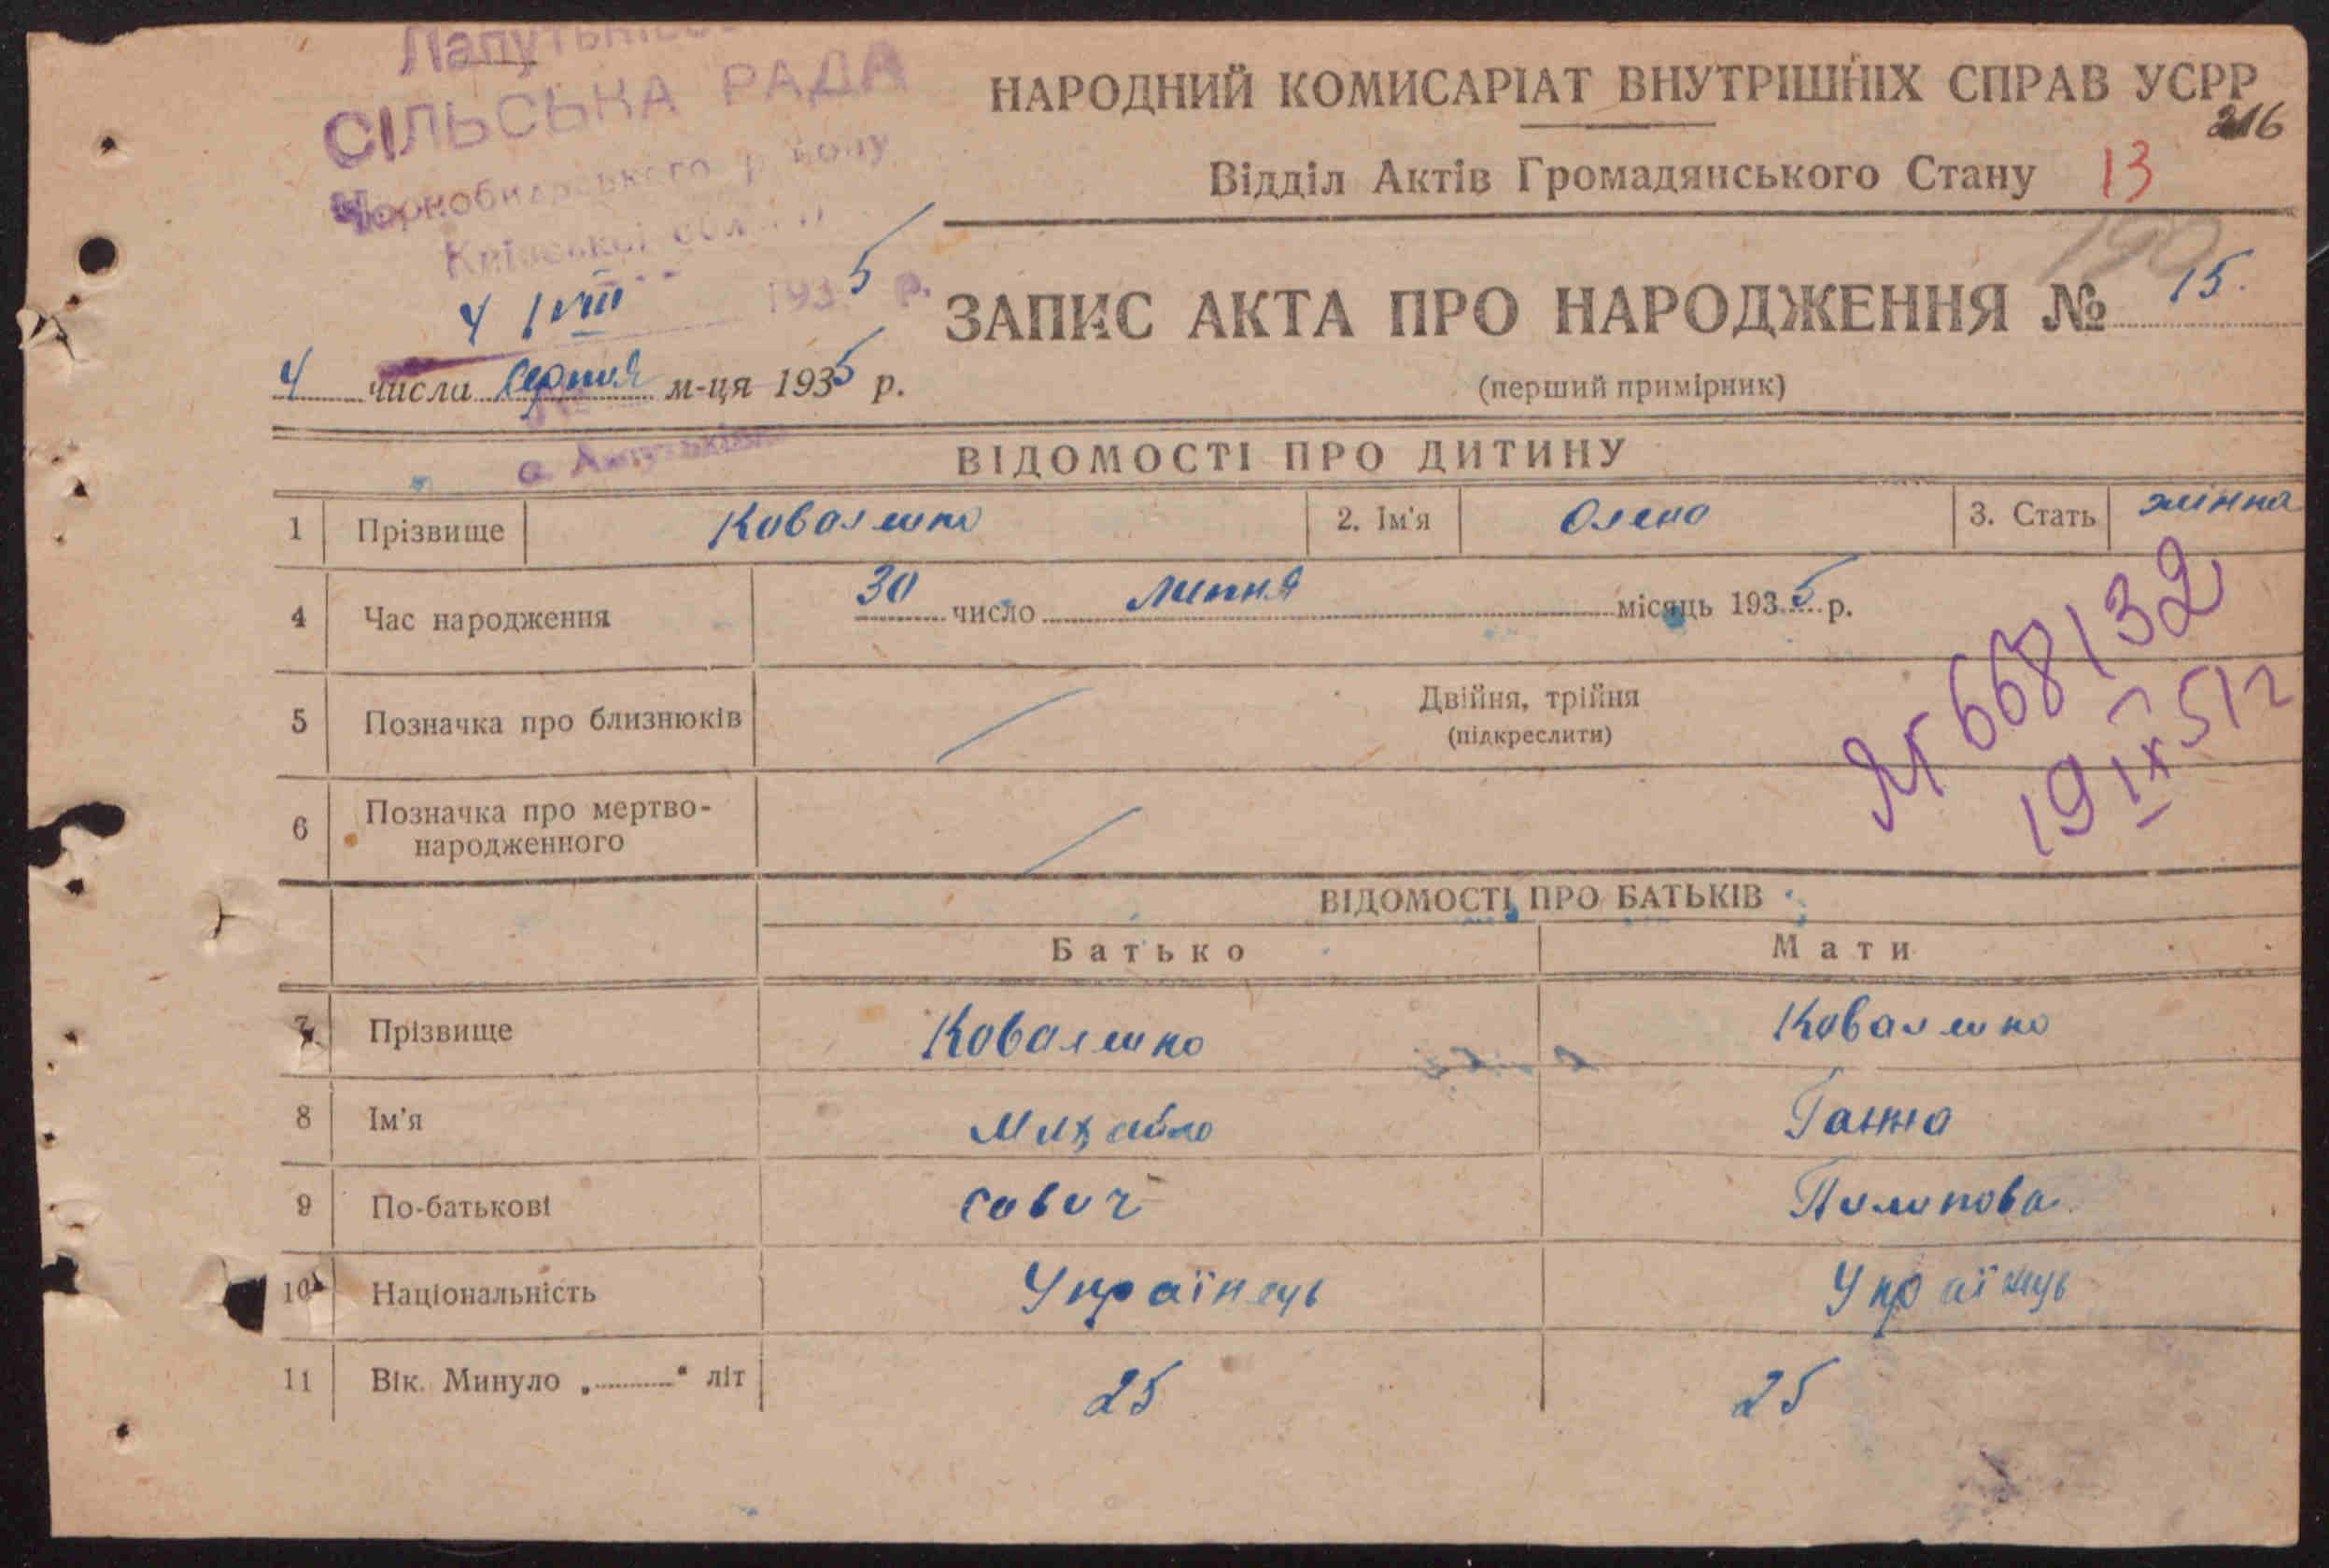 СІЛЬСЬКА РАДА
Чорнобаївського району
Київської області
4 / VIII 1935 р.
НАРОДНИЙ КОМИСАРІАТ ВНУТРІШНІХ СПРАВ УСРР
216
Відділ Актів Громадянського Стану 13
190
ЗАПИС АКТА ПРО НАРОДЖЕННЯ № 15.
4 числа серпня м-ця 1935 р.
(перший примірник)
ВІДОМОСТІ ПРО ДИТИНУ
1 Прізвище Коваленко 2. Ім'я Олена 3. Стать жінка
4 Час народження 30 число липня місяць 1935 р.
5 Позначка про близнюків Двійня, трійня
(підкреслити)
668132
19 IX 51 г
6 Позначка про мертво-
народженного
ВІДОМОСТІ ПРО БАТЬКІВ
Батько Мати
7 Прізвище Коваленко Коваленко
8 Ім'я Михайло Ганна
9 По-батькові Савич Пилипова
10 Національність Українець Українець
11 Вік. Минуло „ “ літ 25 25